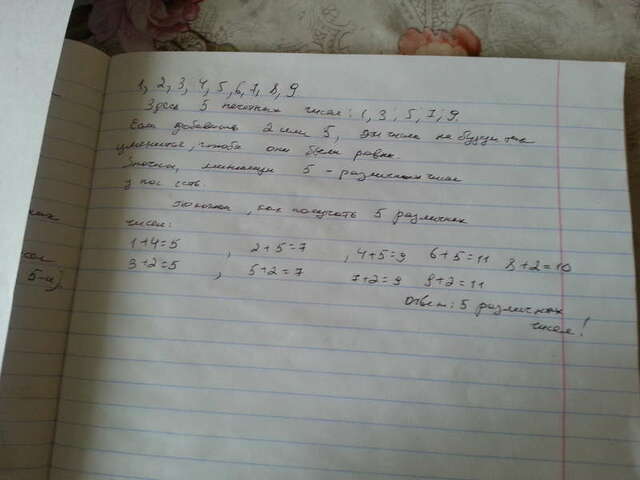 1, 2, 3, 4, 5, 6, 7, 8, 9
Здесь 5 нечетных чисел: 1, 3, 5, 7, 9
Если добавить 2 или 5, эти числа не будут так
чтобы они были равны.
Значит, минимум 5 - различных чисел
у нас есть.
Покажем, как получить 5 различных
чисел:
1+4=5 , 2+5=7 , 4+5=9 6+5=11 8+2=10
3+2=5 , 5+2=7 7+2=9 9+2=11
Ответ: 5 различных
чисел!
5-и),